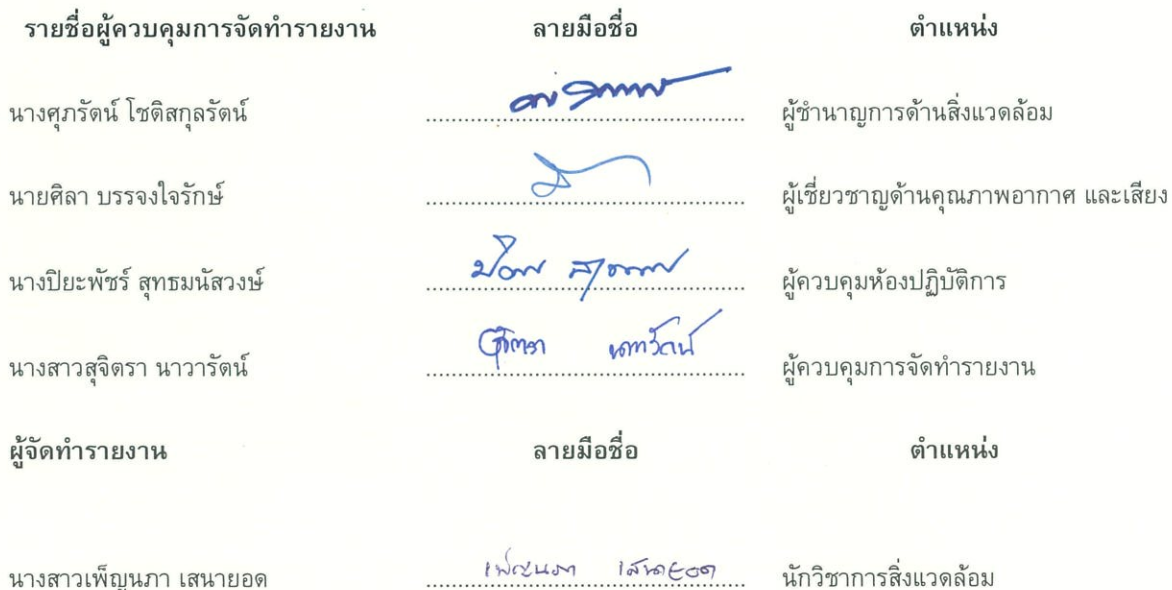 รายชื่อผู้ควบคุมการจัดทำรายงาน ลายมือชื่อ ตำแหน่ง
นางศุภรัตน์ โชติสกุลรัตน์ ผู้ชำนาญการด้านสิ่งแวดล้อม
นายศิลา บรรจงใจรักษ์ ผู้เชี่ยวชาญด้านคุณภาพอากาศ และเสียง
นางปิยะพัชร์ สุทธมนัสวงษ์ ผู้ควบคุมห้องปฏิบัติการ
นางสาวสุจิตรา นาวารัตน์ สุจิตรา นาวารัตน์ ผู้ควบคุมการจัดทำรายงาน
ผู้จัดทำรายงาน ลายมือชื่อ ตำแหน่ง
นางสาวเพ็ญนภา เสนายอด เพ็ญนภา เสนายอด นักวิชาการสิ่งแวดล้อม